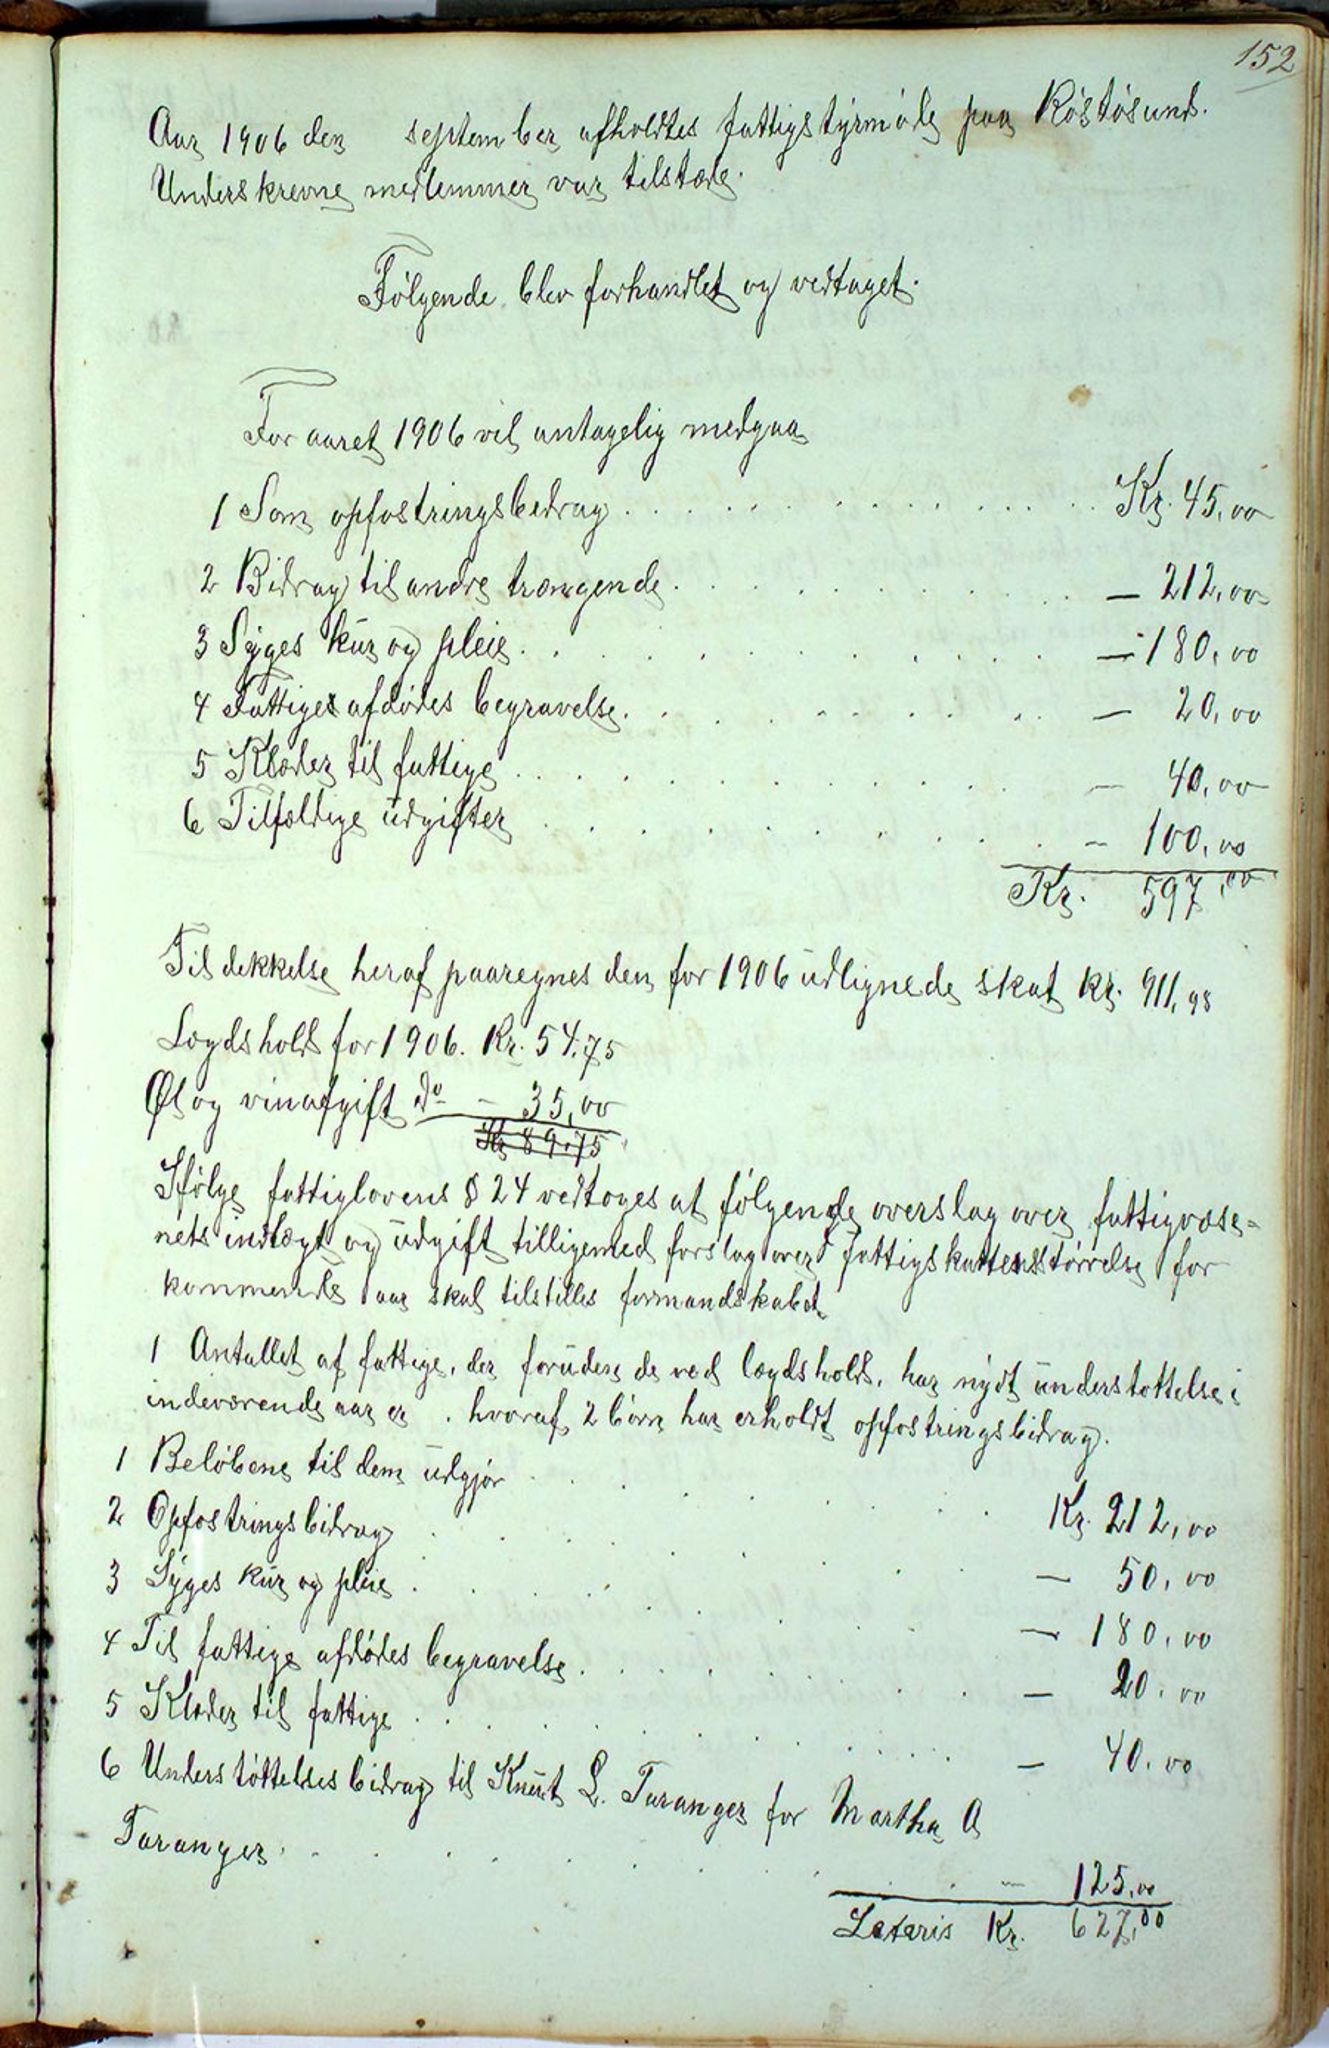 152
Aar 1906 den september afholdtes fattigstyrmøde paa Røstøsund.
Underskrevne medlemmer var tilstæde.
Følgende blev forhandlet og vedtaget.
For aaret 1906 vil antagelig medgaa
1 Som opfostringsbedrag . . . . . . . . . . . . Kr. 45,00
2 Bidrag til andre trængende . . . . . . . . . . — 212,00
3 Syges kur og pleie . . . . . . . . . . . — 180,00
4 Fattiges afdødes begravelse . . . . . . . . . — 20,00
5 Klæder til fattige . . . . . . . . . . . — 40,00
6 Tilfældige udgifter . . . . . . . . . . — 100,00
Kr. 597,00
Til dekkelse heraf paaregnes den for 1906 udlignede skat kr. 911,98
Lægdshold for 1906. Kr. 54,75
Øl og vinafgift do - 35,00
Kr 89,75
Ifølge fattiglovens § 24 vedtoges at følgende overslag over fattigvæse-
nets indtægt og udgift tilligemed forslag over fattigskattens størrelse for
kommende aar skal tilstilles formandskabet
1 Antallet af fattige, der foruden de ved lægdshold, har nydt understøttelse i
indeværende aar er . hvoraf 2 børn har erholdt opfostringsbidrag.
1 Beløbene til dem udgjør . . . . . . . . Kr. 212,00
2 Opfostringsbidrag . . . . . . . — 50,00
3 Syges kur og pleie . . . . . . . . — 180,00
4 Til fattige afdødes begravelse . . . . . . . — 20,00
5 Klæder til fattige . . . . . . . . . . — 40,00
6 Understøttelsesbidrag til Knut L. Taranger for Martha O
Taranger . . . . . . . . . — 125,00
Lateris Kr. 627,00